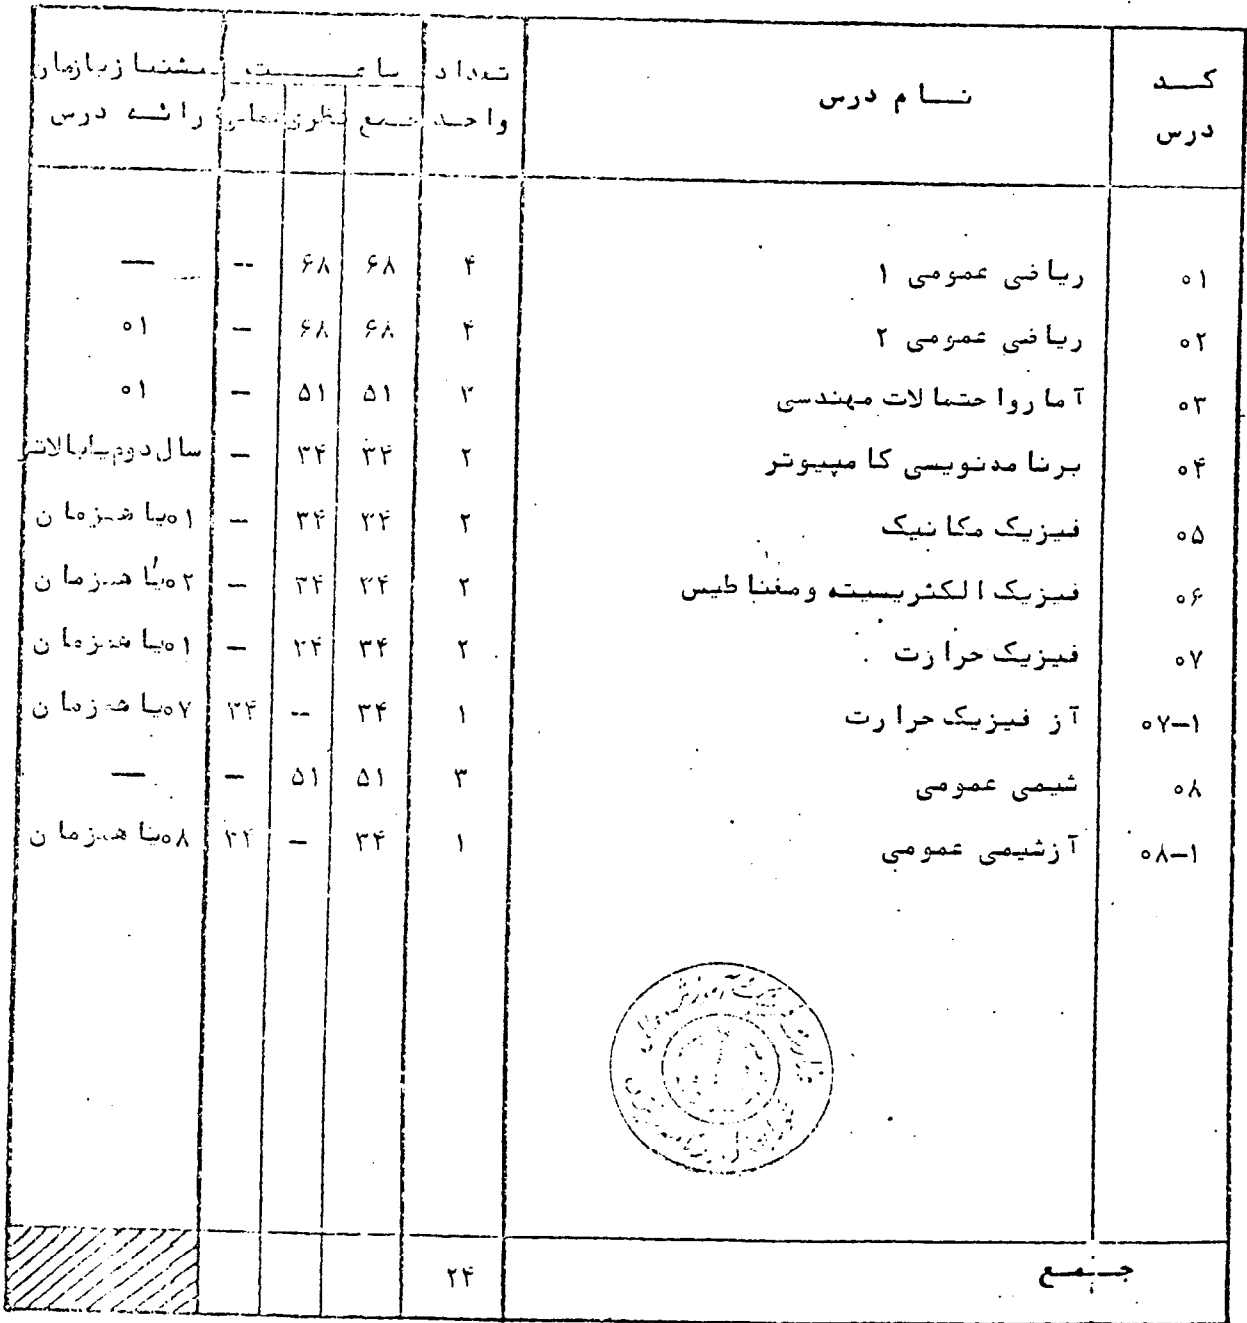 کد درس | نام درس | تعداد واحد | ساعت: جمع | نظری | عملی | پیشنیاز یا زمان ارائه درس
۰۱ | ریاضی عمومی ۱ | ۴ | ۶۸ | ۶۸ | -- | —
۰۲ | ریاضی عمومی ۲ | ۴ | ۶۸ | ۶۸ | – | ۰۱
۰۳ | آمار و احتمالات مهندسی | ۳ | ۵۱ | ۵۱ | – | ۰۱
۰۴ | برنامه‌نویسی کامپیوتر | ۲ | ۳۴ | ۳۴ | – | سال دوم یا بالاتر
۰۵ | فیزیک مکانیک | ۲ | ۳۴ | ۳۴ | – | ۰۱ یا همزمان
۰۶ | فیزیک الکتریسیته و مغناطیس | ۲ | ۳۴ | ۳۴ | – | ۰۲ یا همزمان
۰۷ | فیزیک حرارت | ۲ | ۳۴ | ۳۴ | – | ۰۱ یا همزمان
۰۷–۱ | آز فیزیک حرارت | ۱ | ۳۴ | -- | ۳۴ | ۰۷ یا همزمان
۰۸ | شیمی عمومی | ۳ | ۵۱ | ۵۱ | – | —
۰۸–۱ | آز شیمی عمومی | ۱ | ۳۴ | – | ۳۴ | ۰۸ یا همزمان
جمع | ۲۴